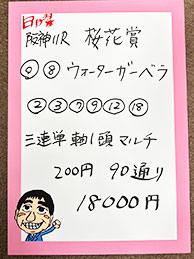 日曜
阪神11R 桜花賞
◎⑧ ウォーターガーベラ
②③⑦⑨⑫⑱
三連単軸1頭マルチ
200円 90通り
18000円